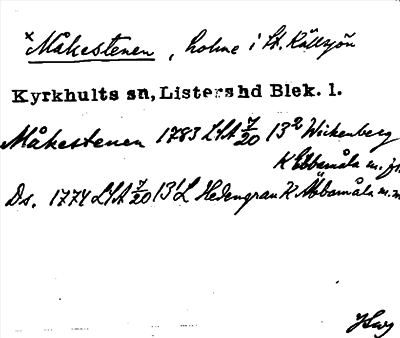 ×Måkestenen, holme i St. Källsjön
Kyrkhults sn, Listers hd Blek. l.
Måkestenen 1783 LSA 7/20 13² Wickenberg
K Ebbamåla m. fl.
Ds. 1774 LSA 7/20 13¹ L Hedengran K Äbbamåla m.m